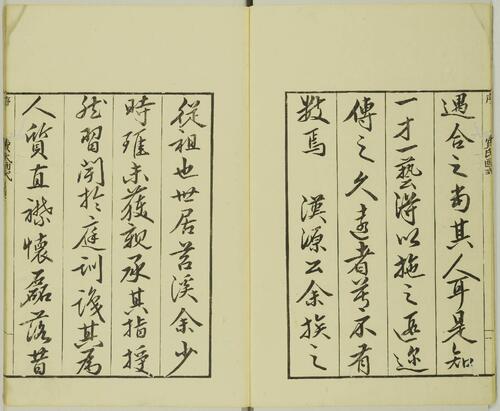 遇合之尚其人耳是知
一才一藝得以施之遐邇
傳之久遠者莫不有
數焉　漢源公余族之
從祖也世居苕溪余少
時雖未獲親承其指授
然習聞於庭訓識其為
人質直襟懷磊落昔